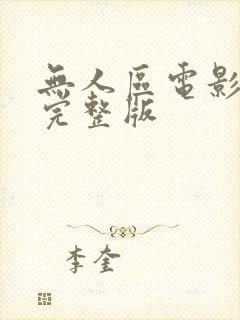 無人區電影
完整版
李奎